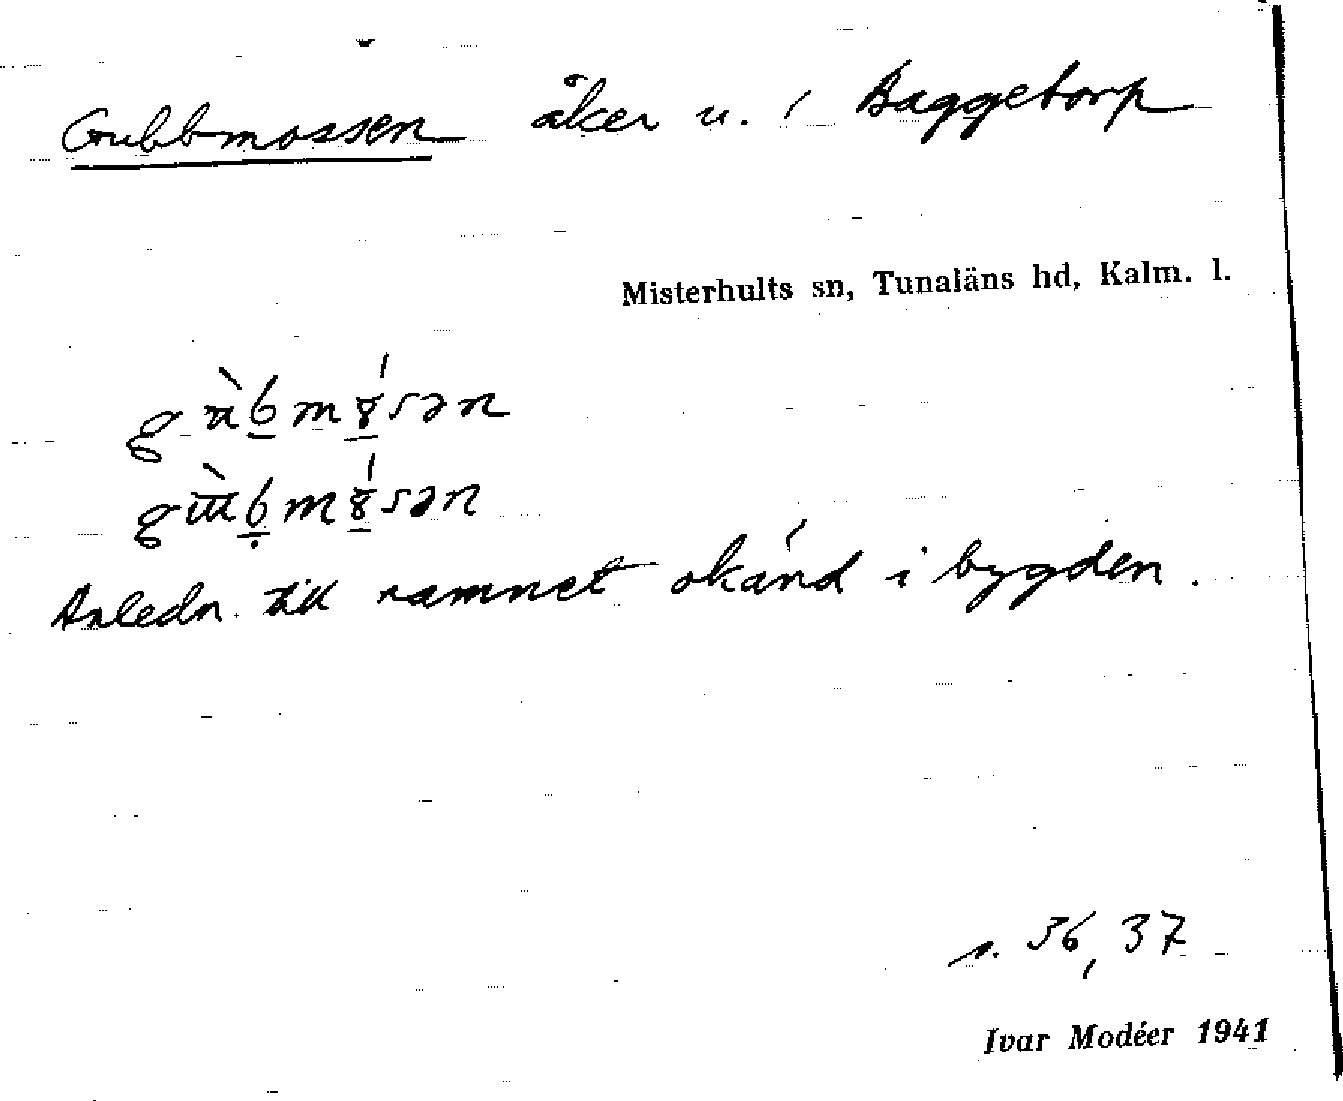 Gubbmossen åker u. i Baggetorp
Misterhults sn, Tunaläns hd, Kalm. l.
Anledn. till namnet okänd i bygden.
s. 36, 37
Ivar Modéer 1941